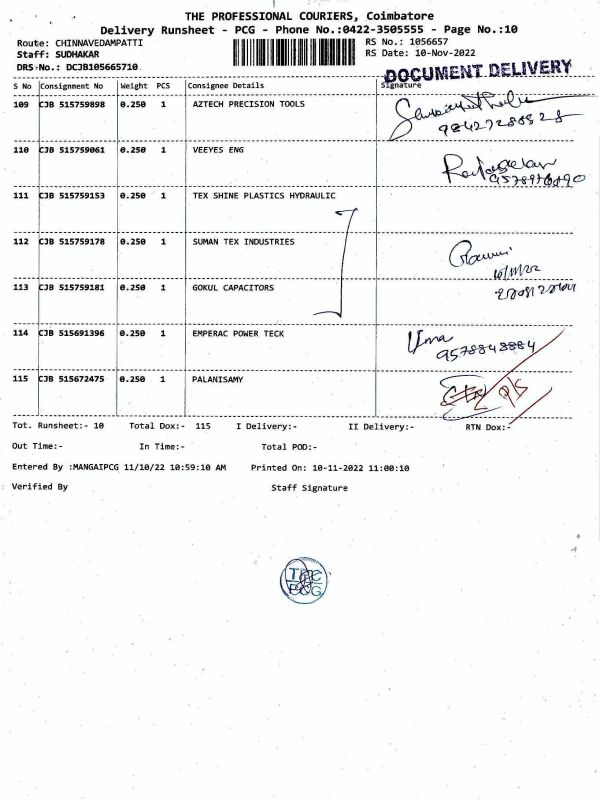 THE PROFESSIONAL COURIERS, Coimbatore
Delivery Runsheet - PCG - Phone No.:0422-3505555 - Page No.:10
Route: CHINNAVEDAMPATTI
RS No.: 1056657
Staff: SUDHAKAR
RS Date: 10-Nov-2022
DRS-No.: DCJB105665710
DOCUMENT DELIVERY
S No Consignment No Weight PCS Consignee Details Signature
109 CJB 515759898 0.250 1 AZTECH PRECISION TOOLS
9842728828
110 CJB 515759061 0.250 1 VEEYES ENG
111 CJB 515759153 0.250 1 TEX SHINE PLASTICS HYDRAULIC
112 CJB 515759178 0.250 1 SUMAN TEX INDUSTRIES
10/11/22
113 CJB 515759181 0.250 1 GOKUL CAPACITORS
114 CJB 515691396 0.250 1 EMPERAC POWER TECK
Uma
9578848884
115 CJB 515672475 0.250 1 PALANISAMY
Tot. Runsheet:- 10 Total Dox:- 115 I Delivery:- II Delivery:- RTN Dox:-
Out Time:- In Time:- Total POD:-
Entered By :MANGAIPCG 11/10/22 10:59:10 AM Printed On: 10-11-2022 11:00:10
Verified By Staff Signature